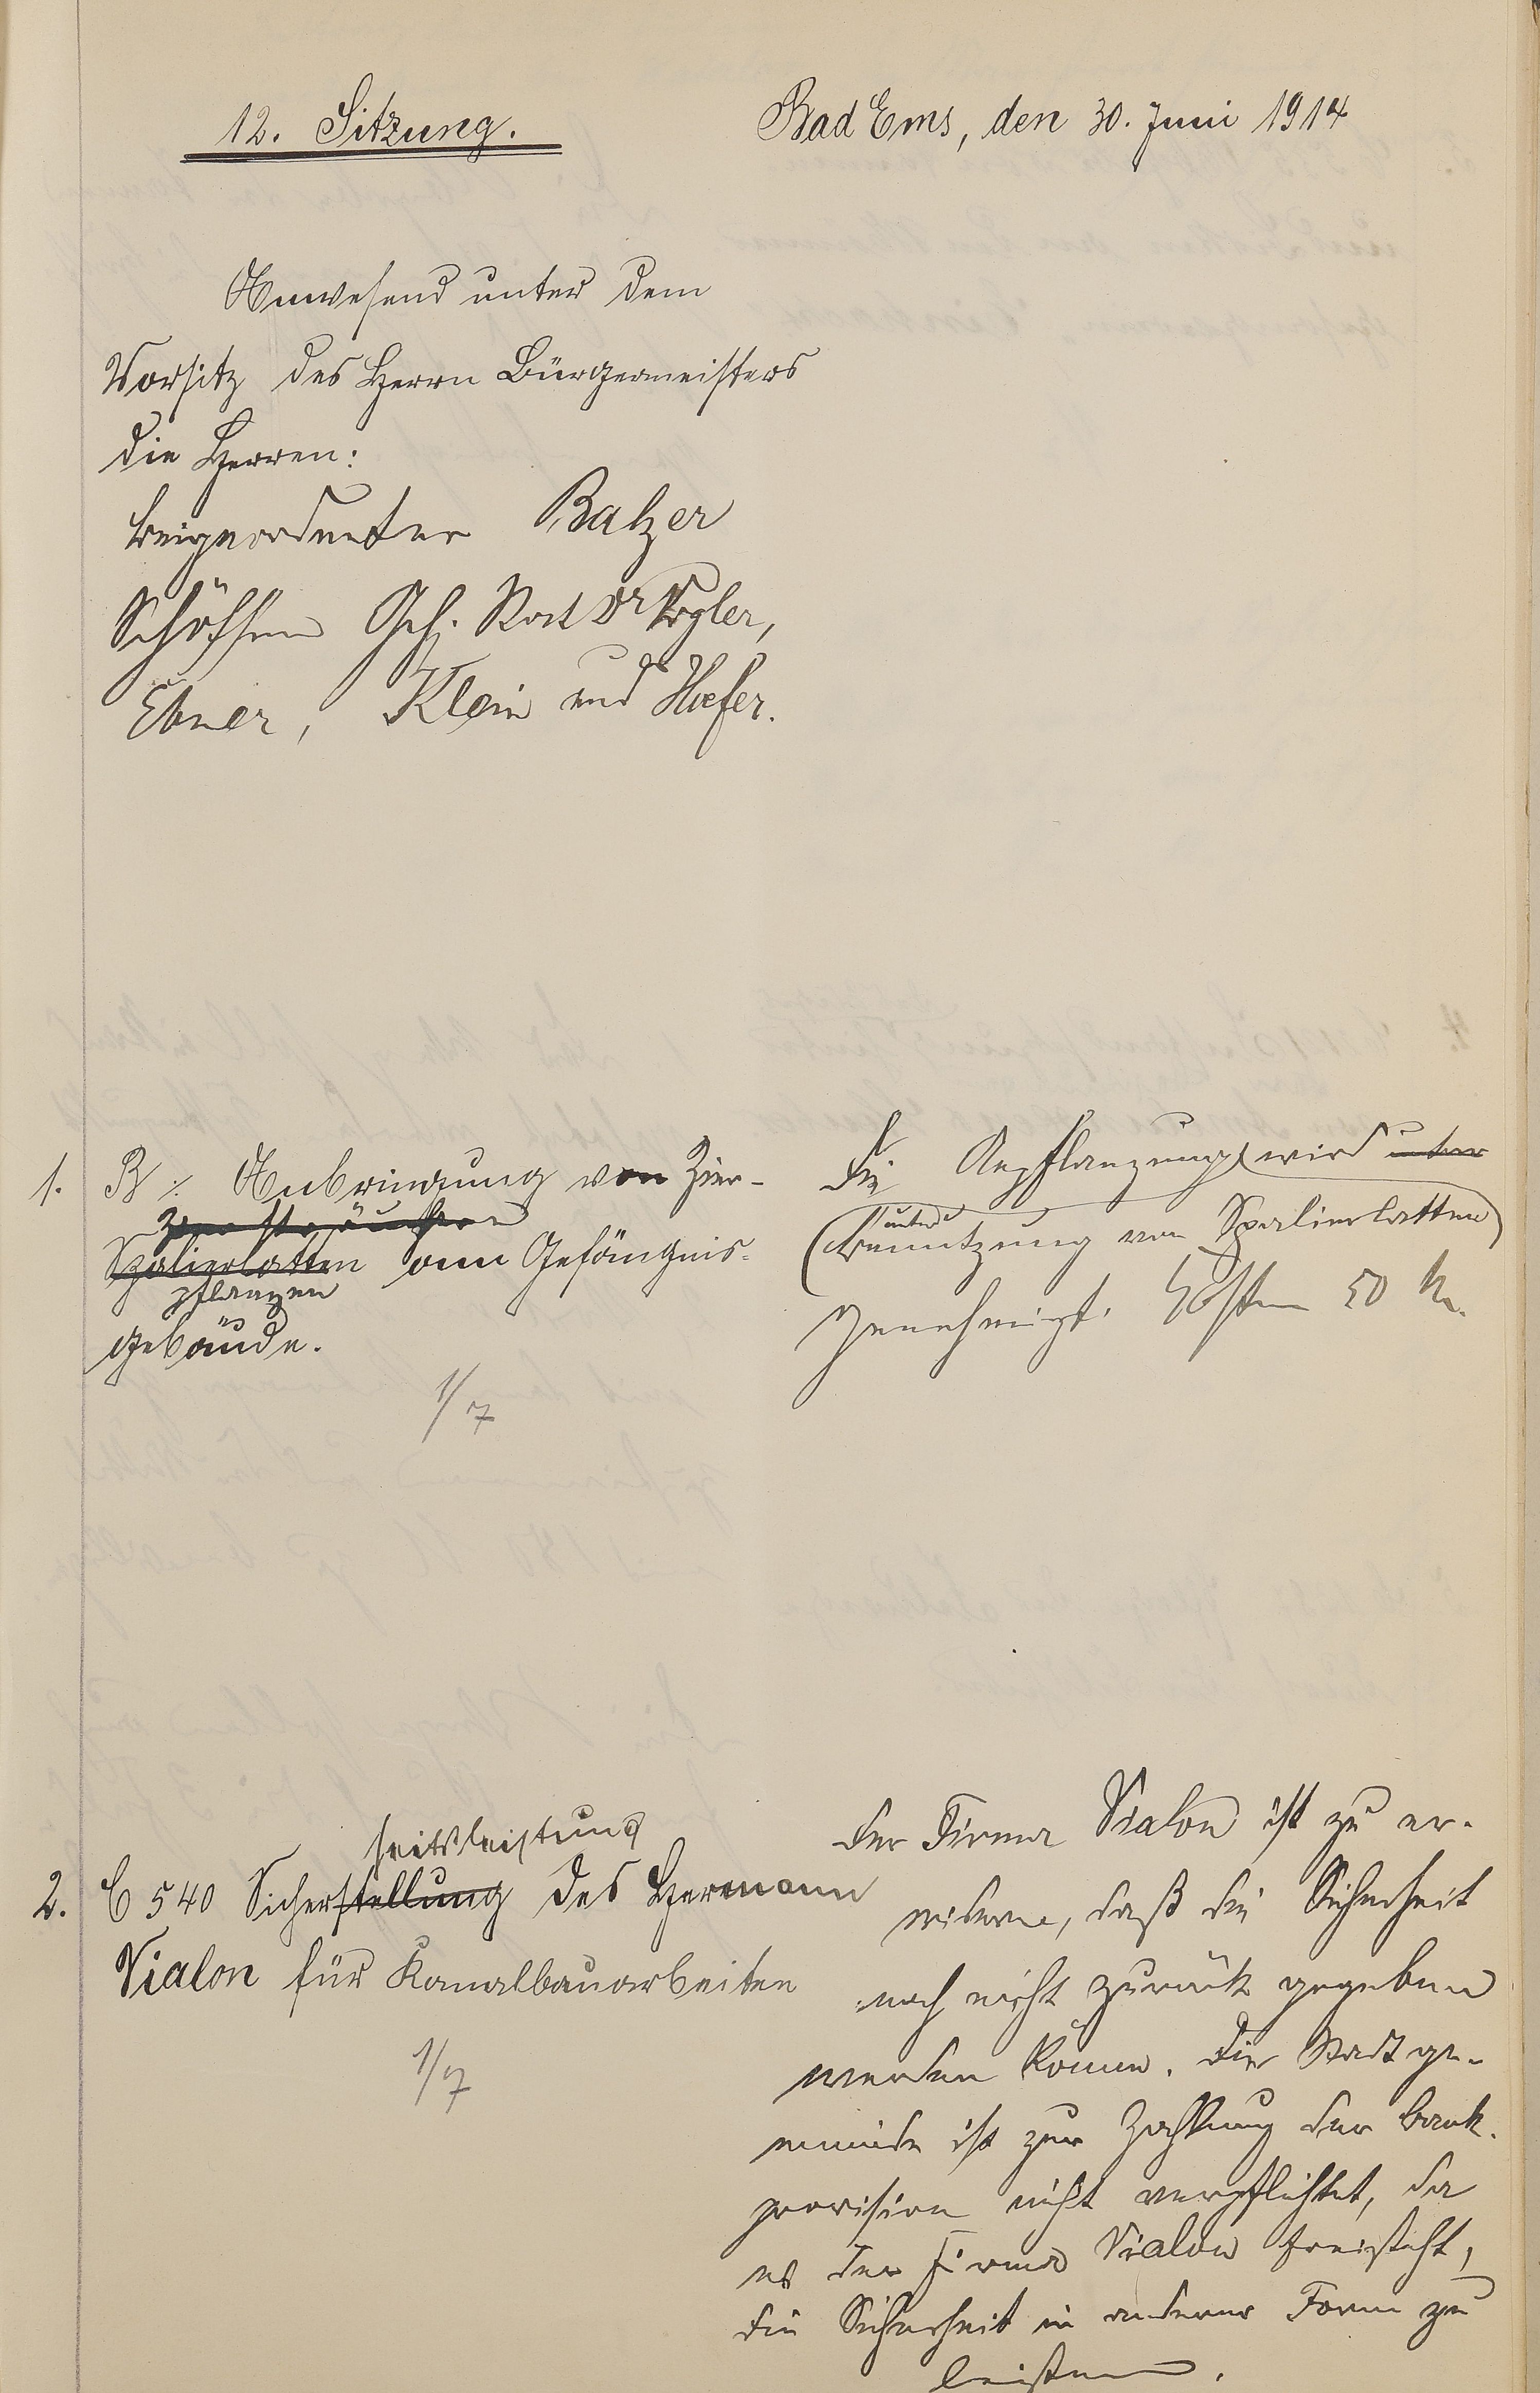 12. Sitzung.
Bad Ems, den 30. Juni 1914
Anwesend unter dem
Vorsitz des Herrn Bürgermeisters
die Herren:
Beigeordneter Balzer
Schöffen Geh. Rat Dr Vogler,
Ebner, Klein und Hofer.
1. B ./. Anbringung von Zier-
Ziersträuchern
Spalierlatten am Gefängnis-
pflanzen
gebäude.
1/7
Die Anpflanzung wird unter
(unter
Benutzung von Spalierlatten)
genehmigt. Kosten 50 M.
heitsleistung
2. C 540 Sicherstellung des Hermann
Vialon für Kanalbauarbeiten
1/7
Der Firma Vialon ist zu er-
widern, daß die Sicherheit
noch nicht zurück gegeben
werden könne. Die Stadtge-
meinde ist zur Zahlung der Bank-
provision nicht verpflichtet, da
es der Firma Vialon freisteht,
die Sicherheit in anderer Form zu
leisten.